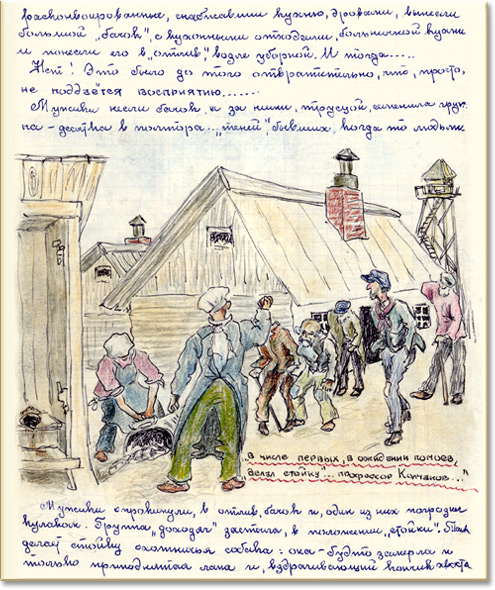 расконвоированные, снабжавшии кухню, дровами, вынесли
большой „бачок", с кухонными отходами, больничной кухни
и понесли его в „отлив", возле уборной. И тогда.....
Нет! Это было до того отвратительно, что, просто,
не поддаётся восприятию,......
Мужики несли бачок, а за ними, трусцой, семенила груп-
па – десятка в полтора... „теней", бывших, когда то людьми
„в числе первых, в ожидании помоев,
делал стойку"... профессор Колчанов..."
Мужики опрокинули, в отлив, бачок и, один из них погрозил
кулаком. Группа „доходяг" застыла, в положении „стойки". Так
делает стойку охотничья собака: она – будто замерла и
только приподнятая лапа и, вздрагивающий кончик хвоста